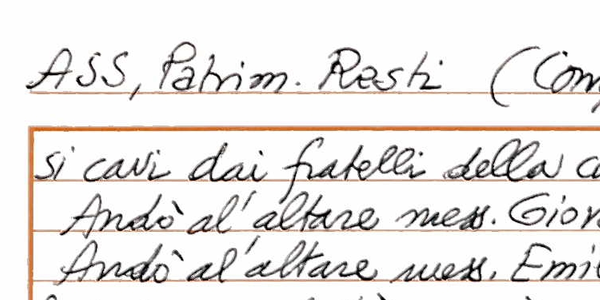 ASS, Patrim. Resti (Com
si cavi dai fratelli della c
Andò al'altare mess. Giov
Andò al'altare mess. Emi